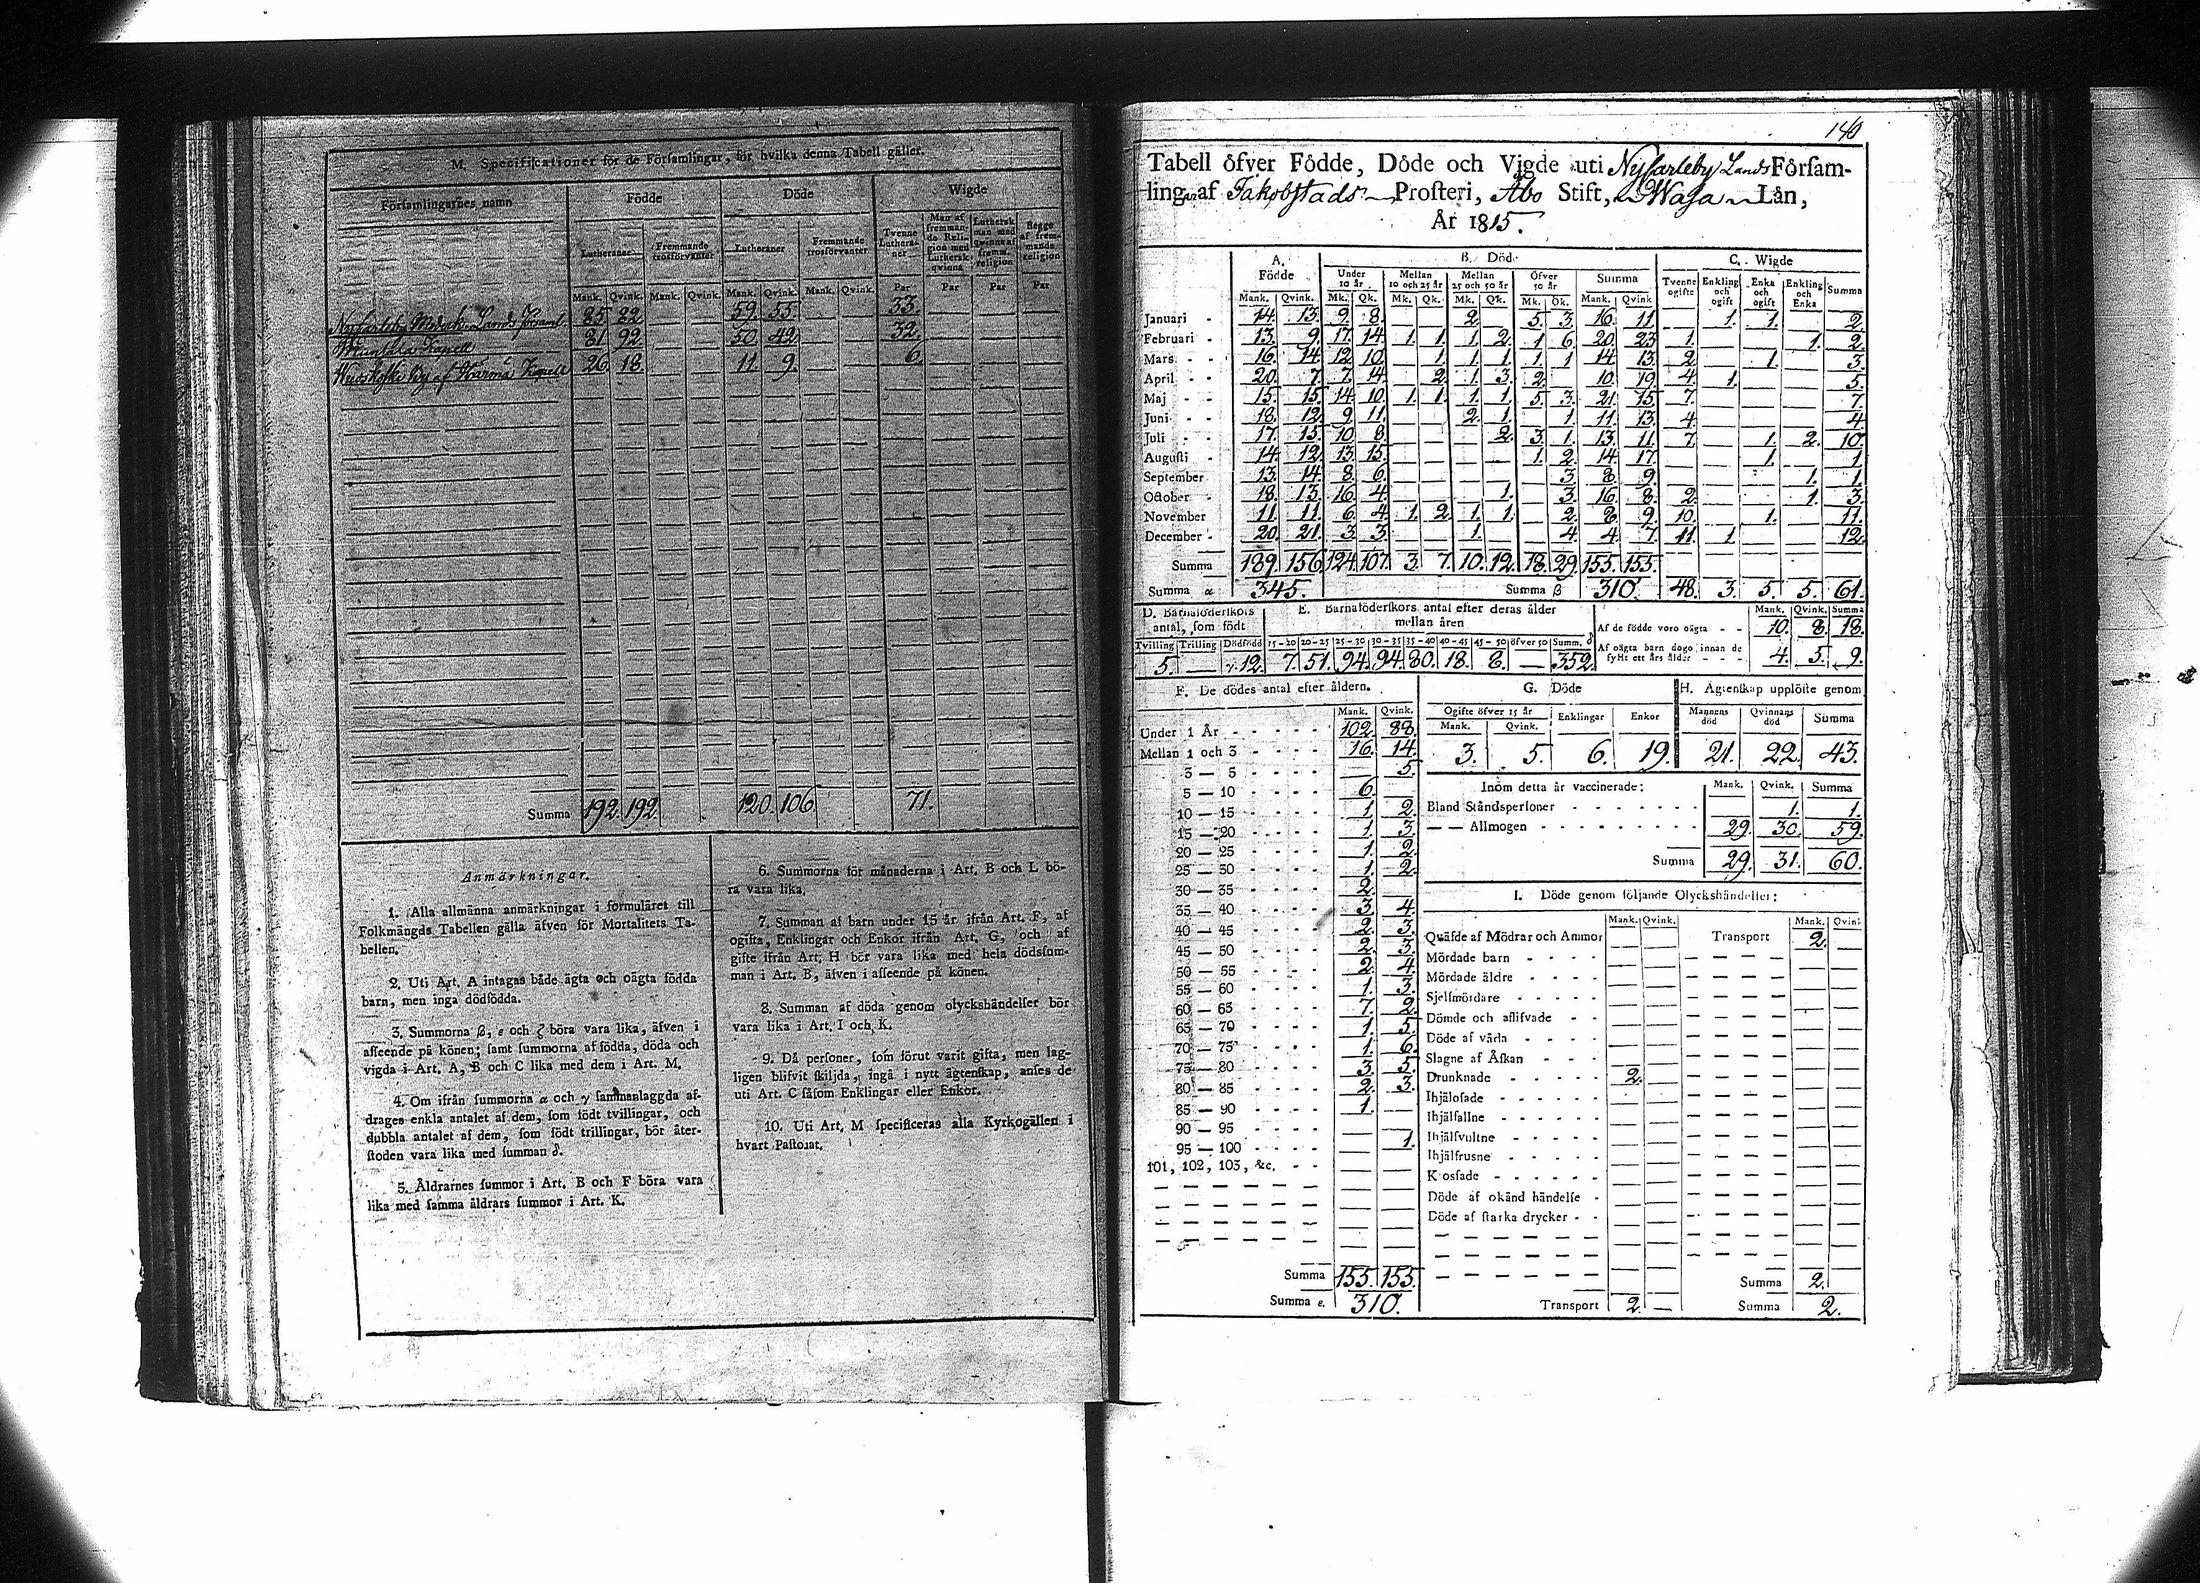 M. Specificationer för de Församlingar, för hvilka denna Tabell gäller.
Församlingarnes namn
Födde
Döde
Wigde
Lutheraner
Fremmande trosförvanter
Lutheraner
Fremmande trosförvanter
Tvenne Lutheraner
Man af fremmande Religion med Luthersk qvinna
Luthersk man med qvinna af fremm. religion
Begge af fremmande religion
Mank. Qvink. Mank. Qvink. Mank. Qvink. Mank. Qvink. Par Par Par Par
Lands 85. 82. 59. 55. 33.
Munsala Kapell 81 92 50. 42. 32.
By af Härmä Kapell 26. 18. 11. 9. 6.
Summa 192. 192. 120. 106. 71.
Anmärkningar.
1. Alla allmänna anmärkningar i formuläret till
Folkmängds Tabellen gälla äfven för Mortalitets Ta-
bellen.
2. Uti Art. A intagas både ägta och oägta födda
barn, men inga dödfödda.
3. Summorna β, ε och ζ böra vara lika, äfven i
afseende på könen; samt summorna af födda, döda och
vigda i Art. A, B och C lika med dem i Art. M.
4. Om ifrån summorna α och γ sammanlaggda af-
drages enkla antalet af dem, som födt tvillingar, och
dubbla antalet af dem, som födt trillingar, bör åter-
stoden vara lika med summan δ.
5. Åldrarnes summor i Art. B och F böra vara
lika med samma åldrars summor i Art. K.
6. Summorna för månaderna i Art. B och L bö-
ra vara lika.
7. Summan af barn under 15 år ifrån Art. F, af
ogifta, Enklingar och Enkor ifrån Art. G, och af
gifte ifrån Art. H bör vara lika med hela dödssum-
man i Art. B, äfven i afseende på könen.
8. Summan af döda genom olyckshändelser bör
vara lika i Art. I och K.
9. Då personer, som förut varit gifta, men lag-
ligen blifvit skiljda, ingå i nytt ägtenskap, anses de
uti Art. C såsom Enklingar eller Enkor.
10. Uti Art. M specificeras alla Kyrkogällen i
hvart Pastorat.
140
Tabell öfver Födde, Döde och Vigde uti Nykarleby Lands Församl-
ling af Jakobstads Prosteri, Åbo Stift, Wasa Län,
År 1815.
A. Födde
B. Döde
C. Wigde
Under 10 år
Mellan 10 och 25 år
Mellan 25 och 50 år
Öfver 50 år
Summa
Tvenne ogifte
Enkling och ogift
Enka och ogift
Enkling och Enka
Summa
Mank. Qvink. Mk. Qk. Mk. Qk. Mk. Qk. Mk. Qk. Mank. Qvink
Januari 14. 13. 9. 8. 2. 5. 3. 16. 11. 1. 1. 2.
Februari 13. 9. 17. 14. 1. 1. 1. 2. 1. 6. 20. 23. 1. 1. 2.
Mars 16. 14. 12. 10. 1. 1. 1. 1. 1. 14. 13. 2. 1. 3.
April 20. 7. 7. 14. 2. 1. 3. 2. 10. 19. 4. 1. 5.
Maj 15. 15. 14. 10. 1. 1. 1. 1. 5. 3. 21. 15. 7. 7.
Juni 18. 12. 9. 11. 2. 1. 1. 11. 13. 4. 4.
Juli 17. 15. 10. 8. 2. 3. 1. 13. 11. 7. 1. 2. 10.
Augusti 14. 12. 13. 15. 1. 2. 14. 17. 1. 1.
September 13. 14. 8. 6. 3. 8. 9. 1. 1.
October 18. 13. 16. 4. 1. 3. 16. 8. 2. 1. 3.
November 11. 11. 6. 4. 1. 2. 1. 1. 2. 8. 9. 10. 1. 11.
December 20. 21. 3. 3. 1. 4. 4. 7. 11. 1. 12.
Summa 189. 156. 124. 107. 3. 7. 10. 12. 18. 29. 155. 155.
Summa α 345. Summa β 310. 48. 3. 5. 5. 61.
D. Barnaföderskors antal, som födt
Tvilling Trilling Dödfödd
5. — γ. 12.
E. Barnaföderskors antal efter deras ålder mellan åren
15–20 20–25 25–30 30–35 35–40 40–45 45–50 öfver 50 Summ. δ
7. 51. 94. 94. 80. 18. 8. — 352.
Mank. Qvink. Summa
Af de födde voro oägta 10. 8. 18.
Af oägta barn dogo innan de fyllt ett års ålder 4. 5. 9.
F. De dödes antal efter åldern.
Mank. Qvink.
Under 1 År 102. 88.
Mellan 1 och 3 16. 14.
3 — 5 — 5.
5 — 10 6. —
10 — 15 1. 2.
15 — 20 1. 3.
20 — 25 1. 2.
25 — 30 1. 2.
30 — 35 2. —
35 — 40 3. 4.
40 — 45 2. 3.
45 — 50 2. 3.
50 — 55 2. 4.
55 — 60 1. 3.
60 — 65 7. 2.
65 — 70 1. 5.
70 — 75 1. 6.
75 — 80 3. 5.
80 — 85 2. 3.
85 — 90 1. —
90 — 95 — —
95 — 100 — 1.
101, 102, 103, &c.
Summa 155. 155.
Summa ε. 310.
G. Döde
Ogifte öfver 15 år
Mank. Qvink. Enklingar Enkor
3. 5. 6. 19.
H. Ägtenskap upplöste genom
Mannens död Qvinnans död Summa
21. 22. 43.
Inom detta år vaccinerade: Mank. Qvink. Summa
Bland Ståndspersoner 1. 1.
— — Allmogen 29. 30. 59.
Summa 29. 31. 60.
I. Döde genom följande Olyckshändelser:
Mank. Qvink. Mank. Qvink
Qväfde af Mödrar och Ammor Transport 2.
Mördade barn
Mördade äldre
Sjelfmördare
Dömde och aflifvade
Döde af våda
Slagne af Åskan
Drunknade 2.
Ihjälosade
Ihjälfallne
Ihjälsvultne
Ihjälfrusne
Krossade
Döde af okänd händelse
Döde af starka drycker
Summa 2.
Transport 2. — Summa 2.